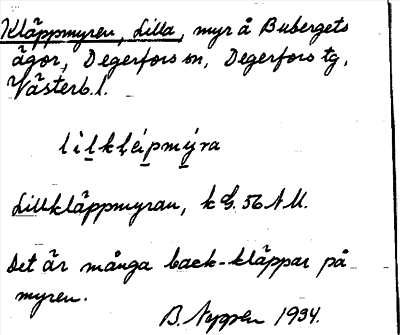 Kläppmyren, Lilla, myr å Bubergets
ägor, Degerfors sn, Degerfors tg,
Västerb. l.
lilkleipmýra
Lillkläppmyran, k G. 56 NU.
Det är många back-kläppar på
myren.
B. 1934.